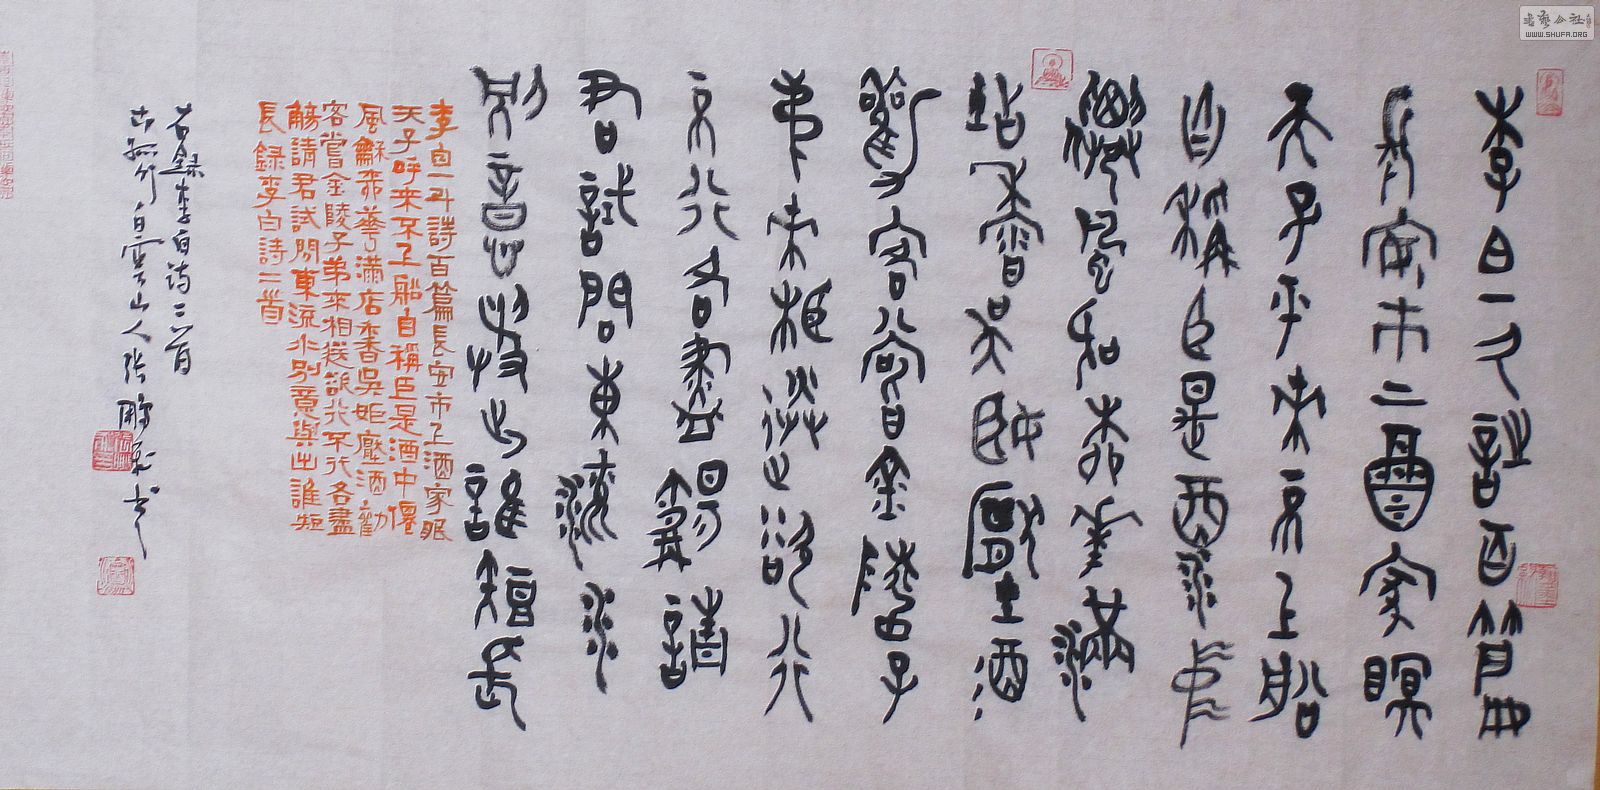 李白一斗詩百篇
長安市上酒家眠
天子呼來不上船
自稱臣是酒中僊
風和柰華滿
店香吳姬壓酒
勸客嘗金陵子
弟來相送欲行
不行各盡觴請
君試問東流水
別意與之誰短長
李白一斗詩百篇長安市上酒家眠
天子呼來不上船自稱臣是酒中僊
風龢柰華滿店香吳姬壓酒勸
客嘗金陵子弟來相送欲行不行各盡
觴請君試問東流水別意與之誰短
長錄李白詩二首
右錄李白詩二首
白雲山人張鵬書
書藝公社
WWW.SHUFA.ORG